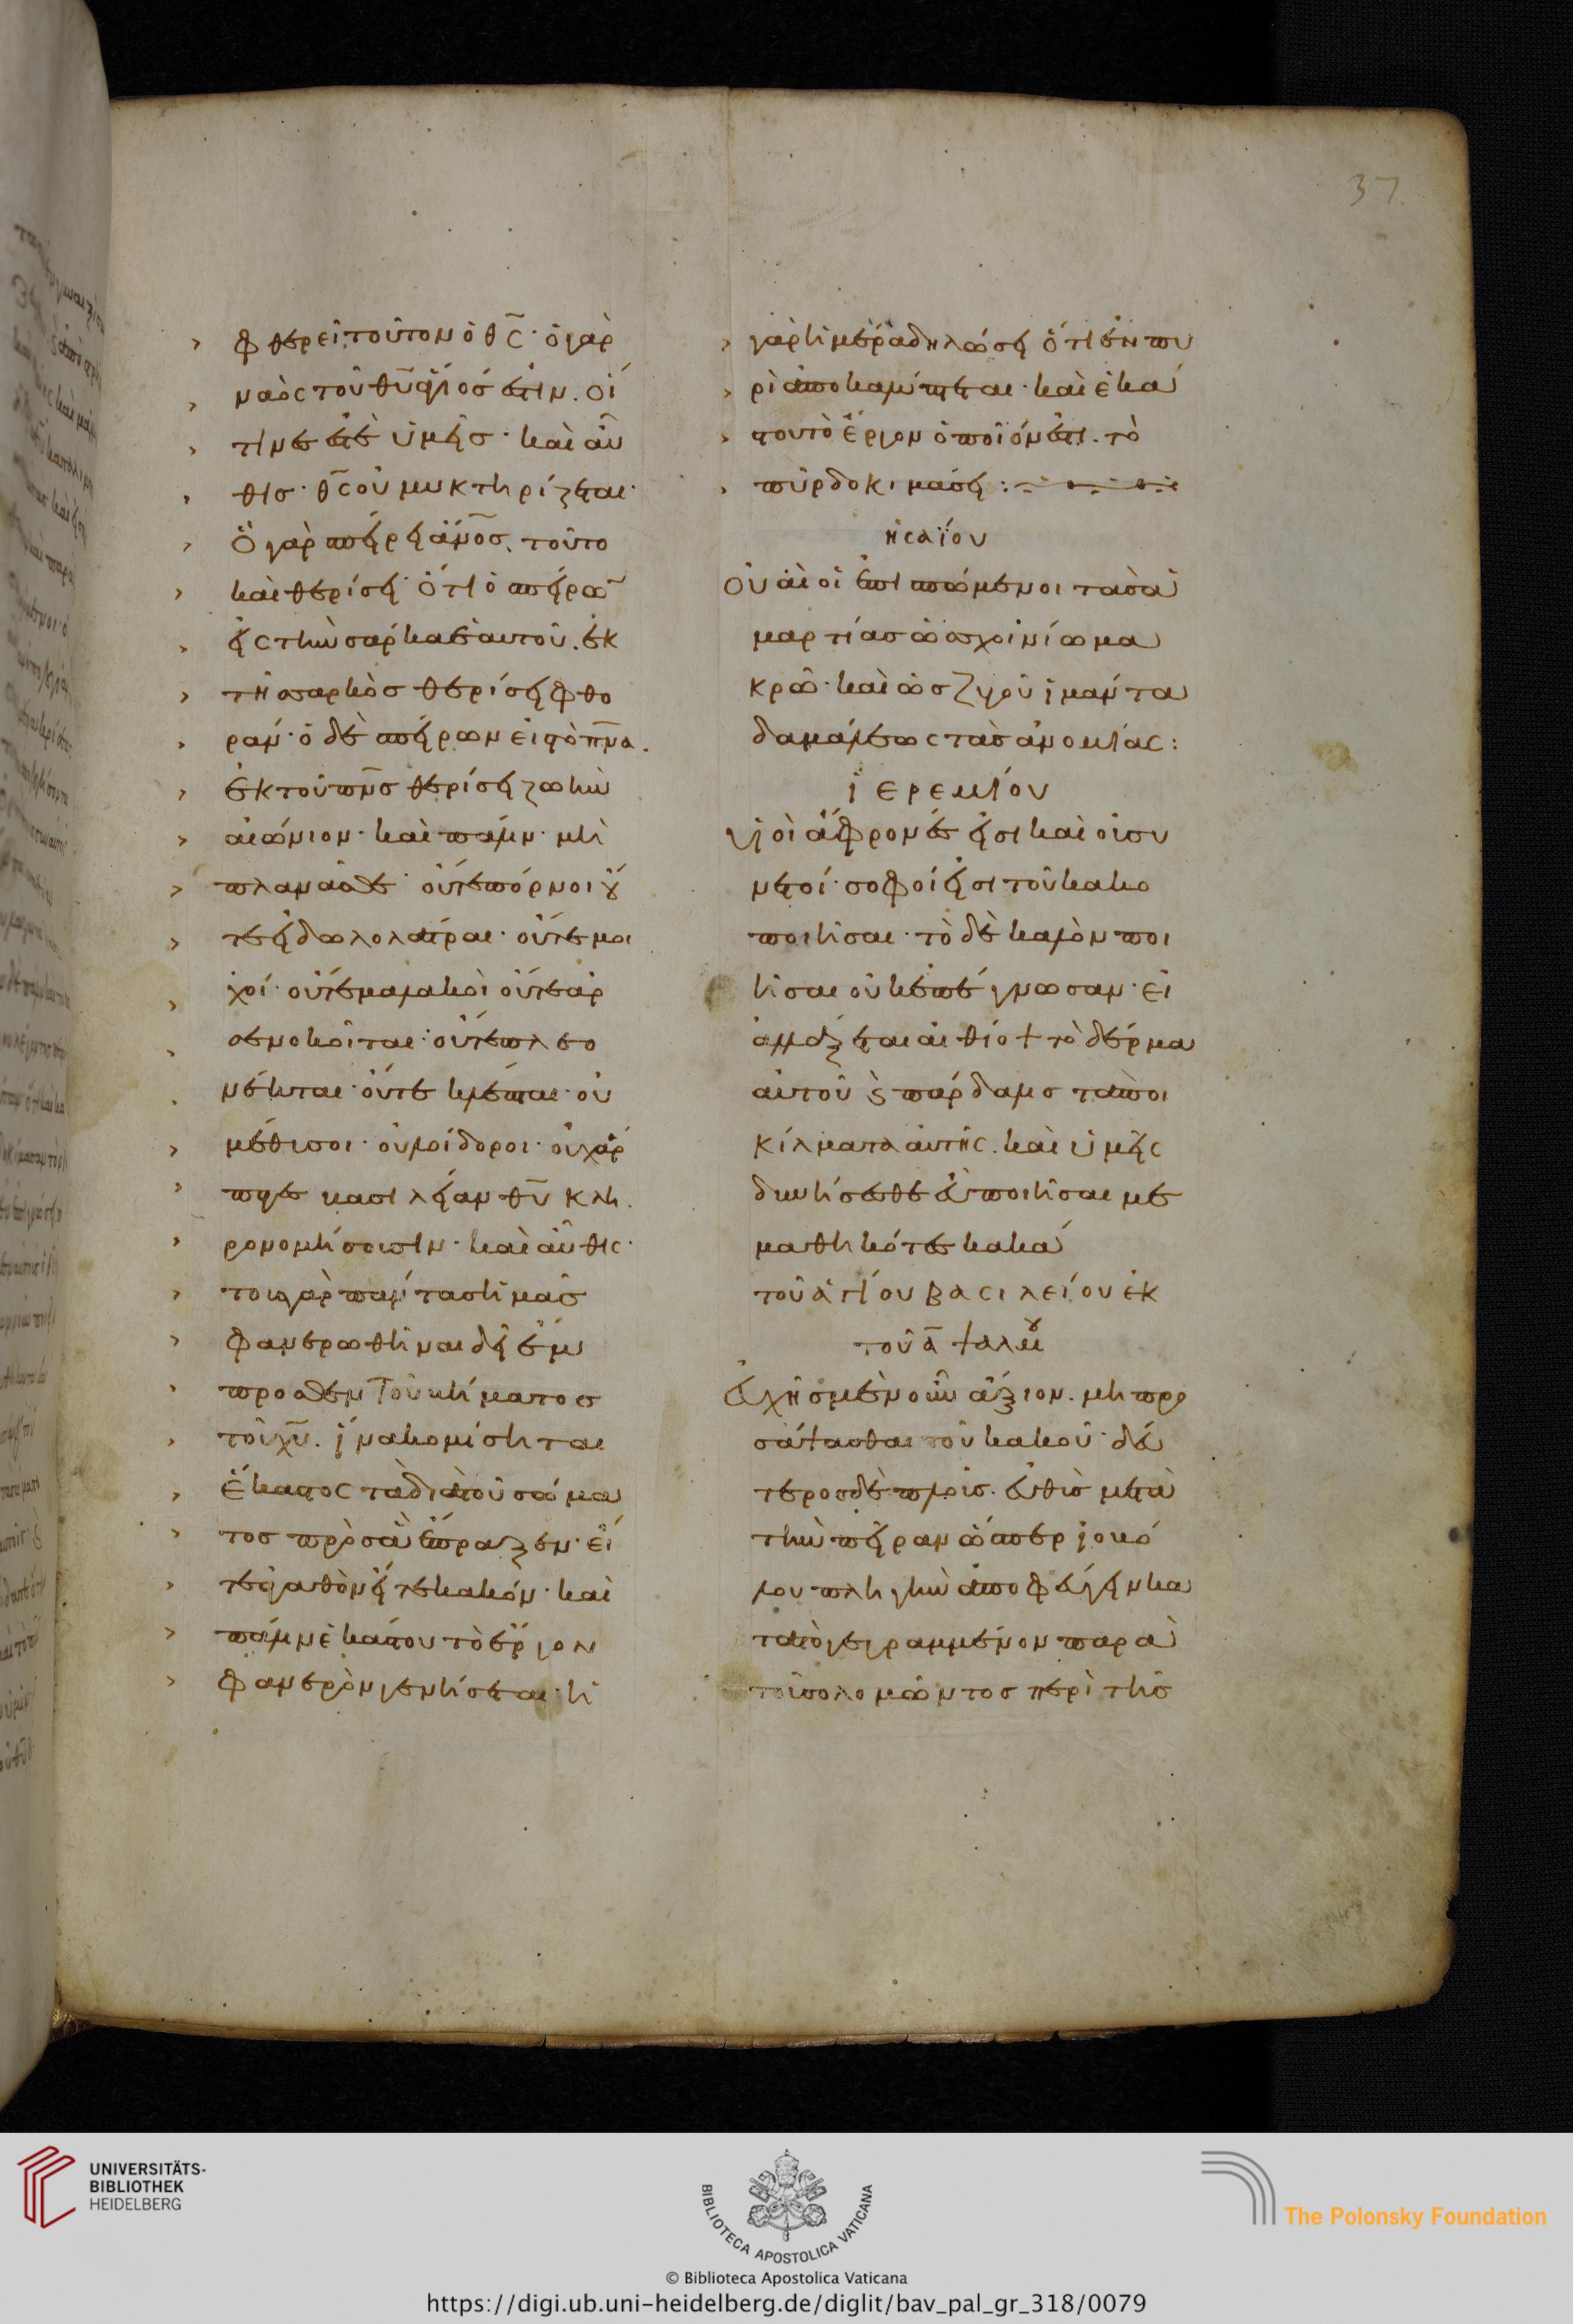 37
φθερεῖ τοῦτον ὁ θ̅ς̅· ὁ γὰρ
ναὸς τοῦ θ̅υ̅ ἅγιός ἐστιν. οἵ
τινές ἐστε ὑμεῖς· καὶ αὖ
θις· θ̅ς̅ οὐ μυκτηρίζεται·
ὃ γὰρ σπείρει ἄν̅ο̅ς̅, τοῦτο
καὶ θερίσει· ὅτι ὁ σπείρων
εἰς τὴν σάρκα ἑαυτοῦ. ἐκ
τῆς σαρκὸς θερίσει φθο
ράν· ὁ δὲ σπείρων εἰς τὸ π̅ν̅α̅.
ἐκ τοῦ π̅ν̅ς̅ θερίσει ζωὴν
αἰώνιον· καὶ πάλιν· μὴ
πλανᾶσθε· οὔτε πόρνοι οὔ
τε εἰδωλολάτραι· οὔτε μοι
χοί· οὔτε μαλακοὶ οὔτε ἀρ
σενοκοῖται· οὔτε πλεο
νέκται· οὔτε κλέπται· οὐ
μέθυσοι· οὐ λοίδοροι· οὐχ ἅρ
παγες βασιλείαν θ̅υ̅ κλη
ρονομήσουσιν· καὶ αὖθις·
τοὺς γὰρ πάντας ἡμᾶς
φανερωθῆναι δεῖ ἔμ
προσθεν τοῦ βήματος
τοῦ χ̅υ̅. ἵνα κομίσηται
ἕκαστος τὰ διὰ τοῦ σώμα
τος πρὸς ἃ ἔπραξεν· εἴ
τε ἀγαθὸν εἴτε κακόν· καὶ
πάλιν ἑκάστου τὸ ἔργον
φανερὸν γενήσεται· ἡ
γὰρ ἡμέρα δηλώσει ὅτι ἐν πυ
ρὶ ἀποκαλύπτεται· καὶ ἑκά
στου τὸ ἔργον ὁποῖόν ἐστι. τὸ
πῦρ δοκιμάσει:
ἡσαΐου
οὐαὶ οἱ ἐπισπώμενοι τὰς ἁ
μαρτίας ὡς σχοινίω μα
κρῶ· καὶ ὡς ζυγοῦ ἱμάντα
δαμάλεως τὰς ἀνομίας:
ἱερεμίου
υἱοὶ ἄφρονές εἰσι καὶ οὐ συ
νετοί· σοφοί εἰσι τοῦ κακο
ποιῆσαι· τὸ δὲ καλὸν ποι
ῆσαι οὐκ ἐπέγνωσαν· εἰ
ἀλλάξεται αἰθίοψ τὸ δέρμα
αὐτοῦ ϗ πάρδαλις τὰ ποι
κίλματα αὐτῆς. καὶ ὑμεῖς
δυνήσεσθε εὖ ποιῆσαι με
μαθηκότες κακά
τοῦ ἁγίου βασιλείου ἐκ
τοῦ α̅ ψαλμοῦ
εὐχῆς μὲν οὖν ἄξιον. μὴ προ
σάψασθαι τοῦ κακοῦ· δεύ
τερος δὲ πλοῦς. εὐθὺς μετὰ
τὴν πεῖραν ὥσπερ ἰοβό
λου πληγὴν ἀποφεύγειν κα
τὰ τὸ γεγραμμένον παρὰ
τοῦ σολομῶντος περὶ τῆς
UNIVERSITÄTS-
BIBLIOTHEK
HEIDELBERG
BIBLIOTECA APOSTOLICA VATICANA
The Polonsky Foundation
© Biblioteca Apostolica Vaticana
https://digi.ub.uni-heidelberg.de/diglit/bav_pal_gr_318/0079